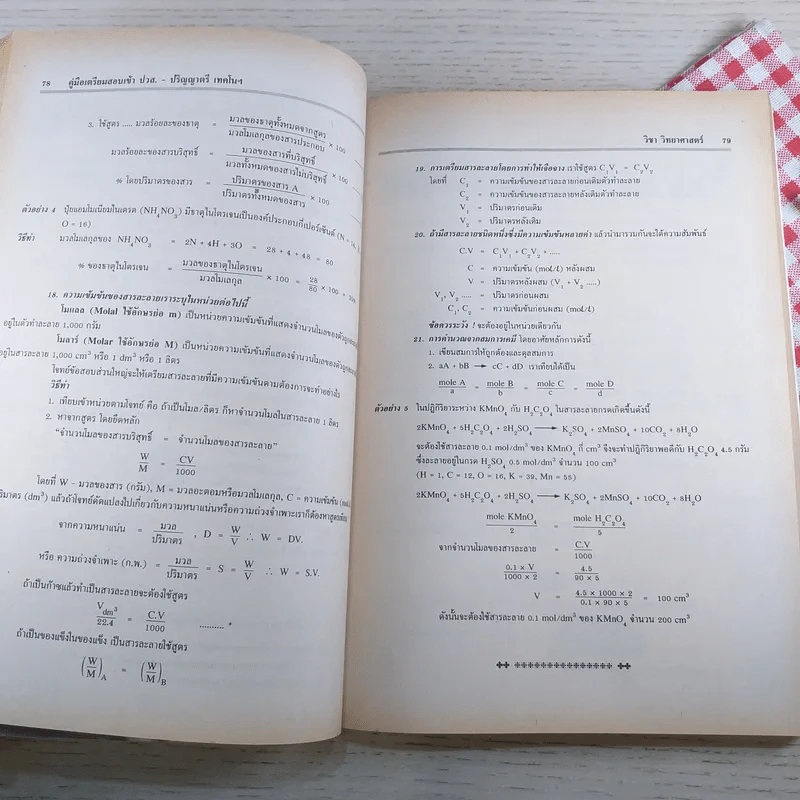 78 คู่มือเตรียมสอบเข้า ปวส. - ปริญญาตรี เทคโนฯ
3. ใช้สูตร ..... มวลร้อยละของธาตุ = มวลของธาตุทั้งหมดจากสูตร / มวลโมเลกุลของสารประกอบ × 100
มวลร้อยละของสารบริสุทธิ์ = มวลของสารที่บริสุทธิ์ / มวลทั้งหมดของสารไม่บริสุทธิ์ × 100
% โดยปริมาตรของสาร = ปริมาตรของสาร A / ปริมาตรทั้งหมดของสาร × 100
ตัวอย่าง 4 ปุ๋ยแอมโมเนียมไนเตรต (NH₄NO₃) มีธาตุไนโตรเจนเป็นองค์ประกอบกี่เปอร์เซ็นต์ (N =
O = 16)
วิธีทำ มวลโมเลกุลของ NH₄NO₃ = 2N + 4H + 3O = 28 + 4 + 48 = 80
% ของธาตุไนโตรเจน = มวลของธาตุไนโตรเจน / มวลโมเลกุล × 100 = 28/80 × 100 =
18. ความเข้มข้นของสารละลายเราระบุในหน่วยต่อไปนี้
โมแลล (Molal ใช้อักษรย่อ m) เป็นหน่วยความเข้มข้นที่แสดงจำนวนโมลของตัวถูก
อยู่ในตัวทำละลาย 1,000 กรัม
โมลาร์ (Molar ใช้อักษรย่อ M) เป็นหน่วยความเข้มข้นที่แสดงจำนวนโมลของตัวถูก
อยู่ในสารละลาย 1,000 cm³ หรือ 1 dm³ หรือ 1 ลิตร
โจทย์ข้อสอบส่วนใหญ่จะให้เตรียมสารละลายที่มีความเข้มข้นตามต้องการจะทำอย่างไร
วิธีทำ
1. เทียบเข้าหน่วยตามโจทย์ คือ ถ้าเป็นโมล/ลิตร ก็หาจำนวนโมลในสารละลาย 1 ลิตร
2. หาจากสูตร โดยยึดหลัก
"จำนวนโมลของสารบริสุทธิ์ = จำนวนโมลของสารละลาย"
W/M = CV/1000
โดยที่ W - มวลของสาร (กรัม), M = มวลอะตอมหรือมวลโมเลกุล, C = ความเข้มข้น
ปริมาตร (dm³) แล้วถ้าโจทย์ดัดแปลงไปเกี่ยวกับความหนาแน่นหรือความถ่วงจำเพาะเราก็ต้องหาสูตร
จากความหนาแน่น = มวล/ปริมาตร , D = W/V ∴ W = DV.
หรือ ความถ่วงจำเพาะ (ถ.พ.) = มวล/ปริมาตร = S = W/V ∴ W = S.V.
ถ้าเป็นก๊าซแล้วทำเป็นสารละลายจะต้องใช้สูตร
V dm³/22.4 = C.V/1000 .......... *
ถ้าเป็นของแข็งในของแข็ง เป็นสารละลายใช้สูตร
(W/M)A = (W/M)B
วิชา วิทยาศาสตร์ 79
19. การเตรียมสารละลายโดยการทำให้เจือจาง เราใช้สูตร C₁V₁ = C₂V₂
โดยที่ C₁ = ความเข้มข้นของสารละลายก่อนเติมตัวทำละลาย
C₂ = ความเข้มข้นของสารละลายหลังเติมตัวทำละลาย
V₁ = ปริมาตรก่อนเติม
V₂ = ปริมาตรหลังเติม
20. ถ้ามีสารละลายชนิดหนึ่งซึ่งมีความเข้มข้นหลายค่า แล้วนำมารวมกันจะได้ความสัมพันธ์
C.V = C₁V₁ + C₂V₂ + .....
C = ความเข้มข้น (mol/l) หลังผสม
V = ปริมาตรหลังผสม (V₁ + V₂ .....)
V₁, V₂ ..... = ปริมาตรก่อนผสม
C₁, C₂ = ความเข้มข้นก่อนผสม (mol/l)
ข้อควรระวัง ! จะต้องอยู่ในหน่วยเดียวกัน
21. การคำนวณจากสมการเคมี โดยอาศัยหลักการดังนี้
1. เขียนสมการให้ถูกต้องและดุลสมการ
2. aA + bB → cC + dD เราเทียบได้เป็น
mole A/a = mole B/b = mole C/c = mole D/d
ตัวอย่าง 5 ในปฏิกิริยาระหว่าง KMnO₄ กับ H₂C₂O₄ ในสารละลายกรดเกิดขึ้นดังนี้
2KMnO₄ + 5H₂C₂O₄ + 2H₂SO₄ → K₂SO₄ + 2MnSO₄ + 10CO₂ + 8H₂O
จะต้องใช้สารละลาย 0.1 mol/dm³ ของ KMnO₄ กี่ cm³ จึงจะทำปฏิกิริยาพอดีกับ H₂C₂O₄ 4.5 กรัม
ซึ่งละลายอยู่ในกรด H₂SO₄ 0.5 mol/dm³ จำนวน 100 cm³
(H = 1, C = 12, O = 16, K = 39, Mn = 55)
2KMnO₄ + 5H₂C₂O₄ + 2H₂SO₄ → K₂SO₄ + 2MnSO₄ + 10CO₂ + 8H₂O
mole KMnO₄/2 = mole H₂C₂O₄/5
จากจำนวนโมลของสารละลาย = C.V/1000
0.1 × V/1000 × 2 = 4.5/90 × 5
V = 4.5 × 1000 × 2/0.1 × 90 × 5 = 100 cm³
ดังนั้นจะต้องใช้สารละลาย 0.1 mol/dm³ ของ KMnO₄ จำนวน 200 cm³